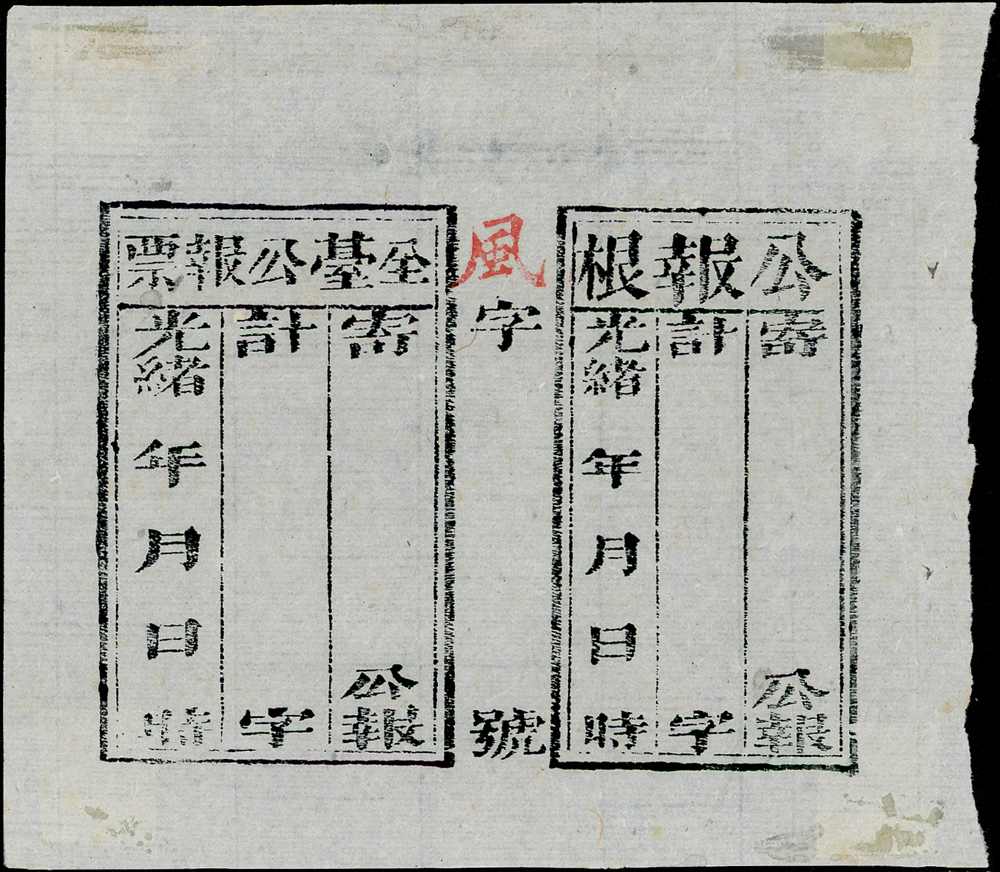 公報根
寄 公報
計 字
光緒 年 月 日 時
風字 號
全臺公報票
寄 公報
計 字
光緒 年 月 日 時